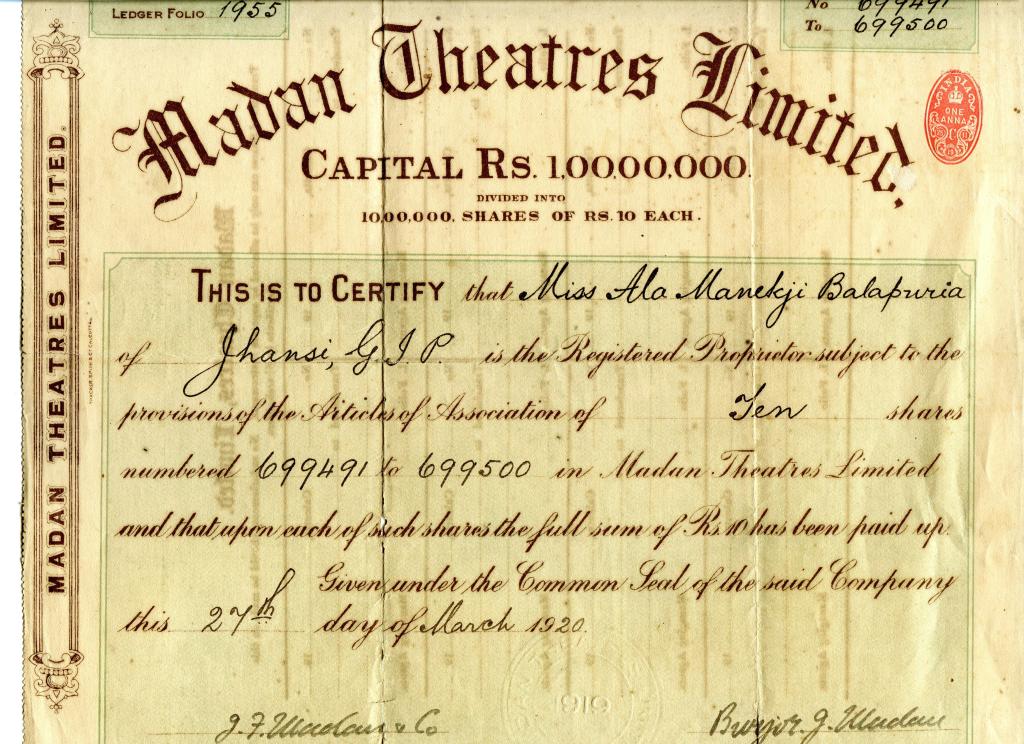 LEDGER FOLIO 1955
No 699491
To 699500
Madan Theatres Limited.
INDIA
ONE
ANNA
CAPITAL RS. 1,00,00,000.
DIVIDED INTO
10,00,000. SHARES OF RS. 10 EACH.
MADAN THEATRES LIMITED.
THIS IS TO CERTIFY that Miss Ala Manekji Balapuria
of Jhansi, G. I. P. is the Registered Proprietor subject to the
provisions of the Articles of Association of Ten shares
numbered 699491 to 699500 in Madan Theatres Limited
and that upon each of such shares the full sum of Rs. 10 has been paid up.
Given under the Common Seal of the said Company
this 27th day of March 1920.
1919
J. F. Madan & Co
J. Madan